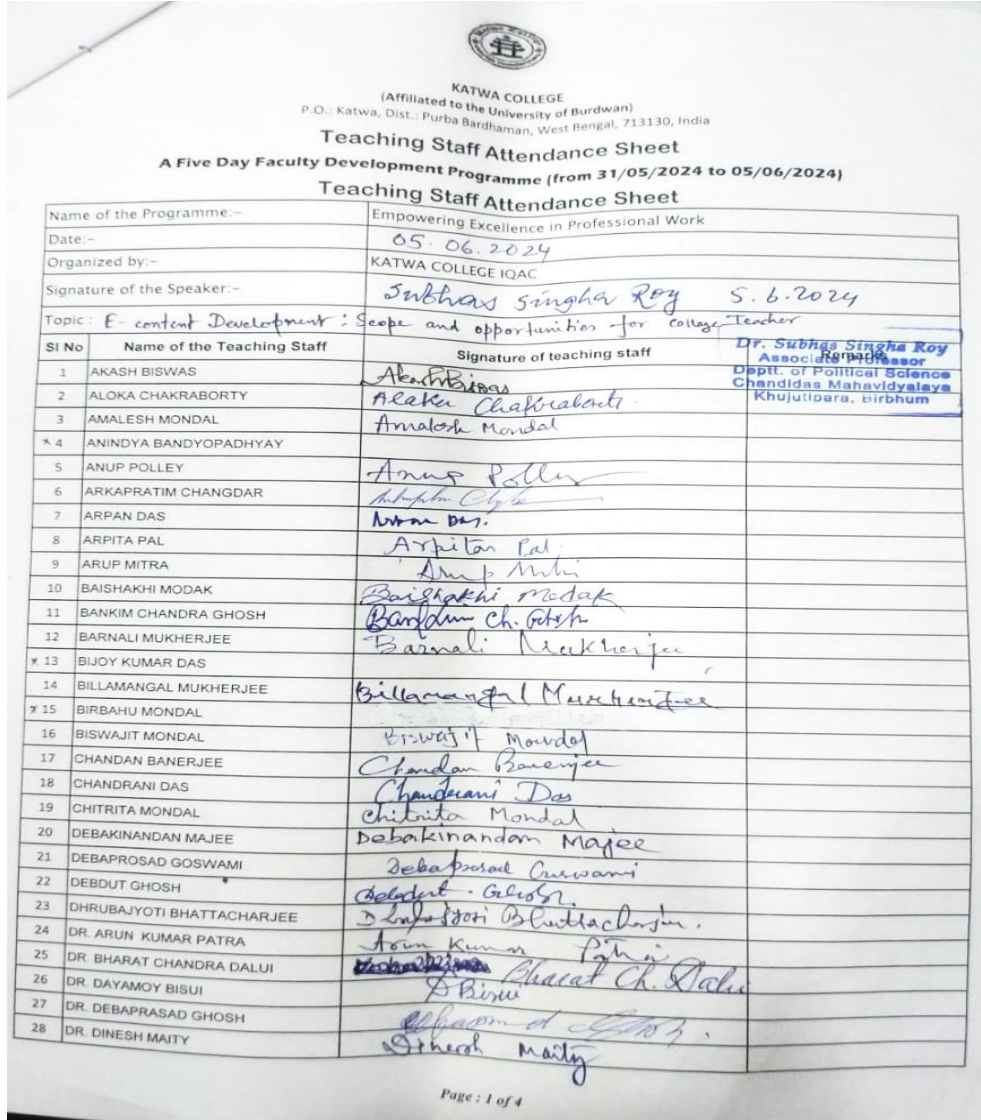 KATWA COLLEGE
(Affiliated to the University of Burdwan)
P.O.: Katwa, Dist.: Purba Bardhaman, West Bengal, 713130, India
Teaching Staff Attendance Sheet
A Five Day Faculty Development Programme (from 31/05/2024 to 05/06/2024)
Teaching Staff Attendance Sheet
Name of the Programme:- Empowering Excellence in Professional Work
Date:- 05.06.2024
Organized by:- KATWA COLLEGE IQAC
Signature of the Speaker:- Subhas Singha Roy 5.6.2024
Topic : E-content Development : Scope and opportunities for college Teacher
Dr. Subhas Singha Roy
Associate Professor
Deptt. of Political Science
Chandidas Mahavidyalaya
Khujutipara, Birbhum
Sl No Name of the Teaching Staff Signature of teaching staff Remarks
1 AKASH BISWAS Akash Biswas
2 ALOKA CHAKRABORTY Aloka Chakraborty
3 AMALESH MONDAL Amalesh Mondal
x 4 ANINDYA BANDYOPADHYAY
5 ANUP POLLEY Anup Polley
6 ARKAPRATIM CHANGDAR
7 ARPAN DAS Arpan Das.
8 ARPITA PAL Arpita Pal
9 ARUP MITRA Arup Mitra
10 BAISHAKHI MODAK Baishakhi Modak
11 BANKIM CHANDRA GHOSH Bankim Ch. Ghosh
12 BARNALI MUKHERJEE Barnali Mukherjee
x 13 BIJOY KUMAR DAS
14 BILLAMANGAL MUKHERJEE Billamangal Mukherjee
x 15 BIRBAHU MONDAL
16 BISWAJIT MONDAL Biswajit Mondal
17 CHANDAN BANERJEE Chandan Banerjee
18 CHANDRANI DAS Chandrani Das
19 CHITRITA MONDAL Chitrita Mondal
20 DEBAKINANDAN MAJEE Debakinandan Majee
21 DEBAPROSAD GOSWAMI Debaprosad Goswami
22 DEBDUT GHOSH Debdut Ghosh.
23 DHRUBAJYOTI BHATTACHARJEE Dhrubajyoti Bhattacharjee.
24 DR. ARUN KUMAR PATRA Arun Kumar Patra
25 DR. BHARAT CHANDRA DALUI Bharat Ch. Dalui
26 DR. DAYAMOY BISUI D Bisui
27 DR. DEBAPRASAD GHOSH
28 DR. DINESH MAITY Dinesh Maity
Page : 1 of 4